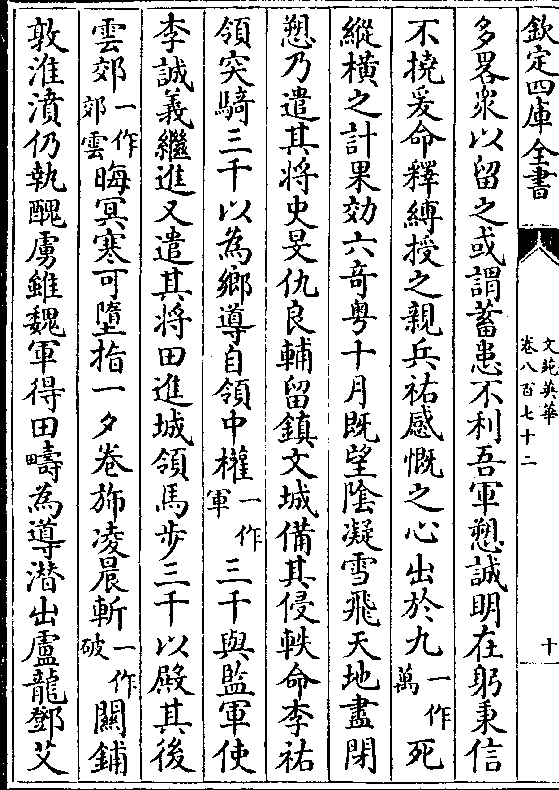 欽定四庫全書
文苑英華
卷八百七十二
十
多畧衆以留之或謂蓄患不利吾軍愬誠明在躬秉信
不撓爰命釋縛授之親兵祐感慨之心出於九一作萬死
縱橫之計果効六竒粤十月既望隂凝雪飛天地盡閉
愬乃遣其將史旻仇良輔留鎮文城備其侵軼命李祐
領突騎三千以為鄉導自領中權一作軍三千與監軍使
李誠義繼進又遣其將田進城領馬步三千以殿其後
雲郊一作郊雲晦冥寒可墮指一夕卷斾凌晨斬一作破關鋪
敦淮濆仍執醜虜雖魏軍得田疇為導潜出盧龍鄧艾